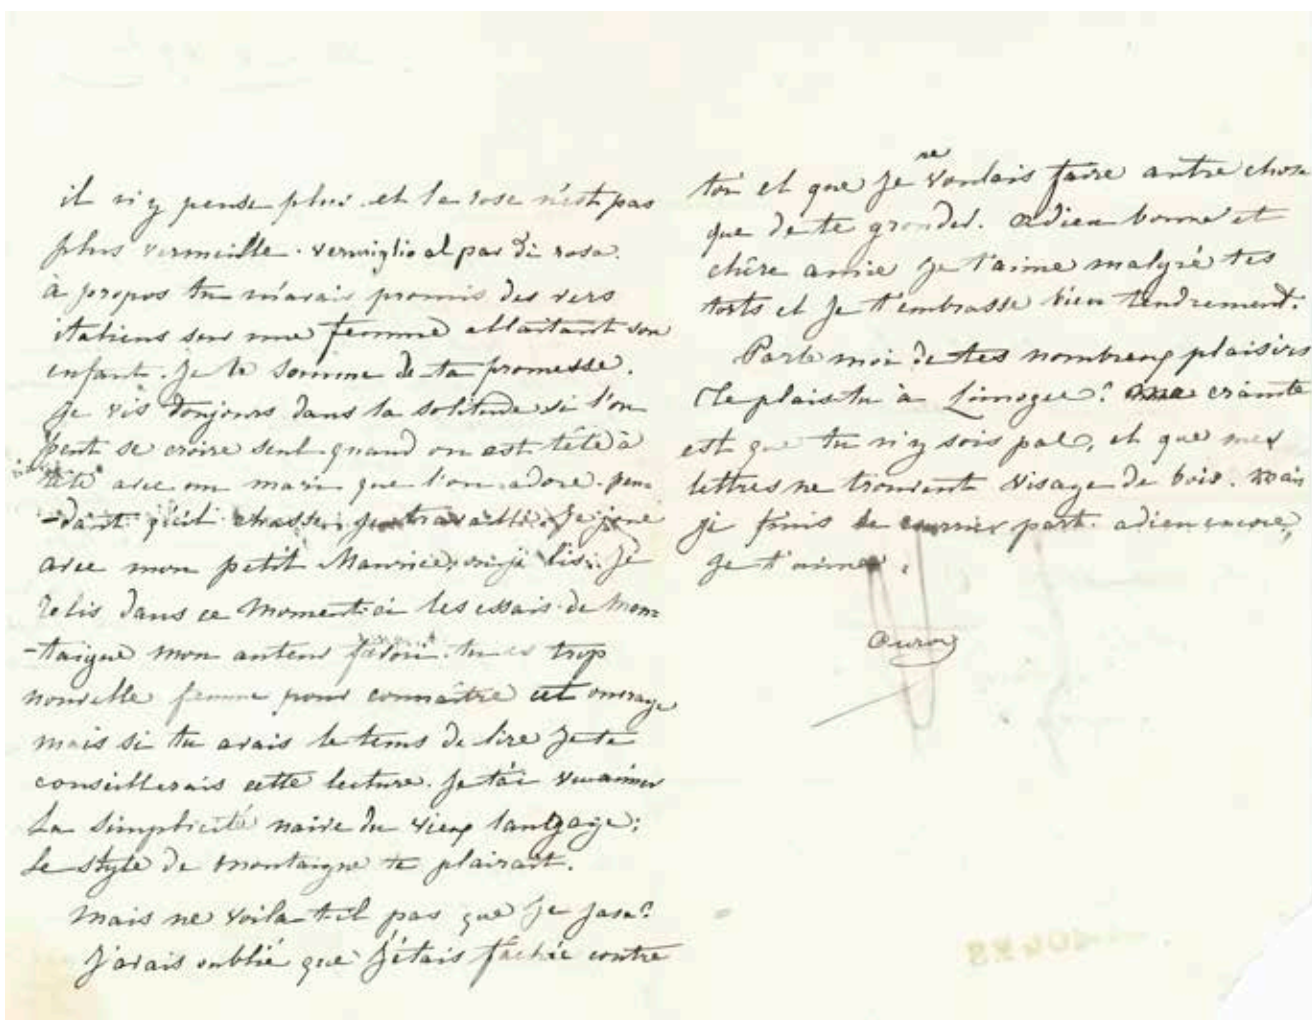 il n'y pense plus et la rose n'est pas
plus vermeille. vermiglio al par di rosa.
à propos tu m'avais promis des vers
italiens sur une femme allaitant son
enfant. je te somme de ta promesse.
je vis toujours dans la solitude si l'on
peut se croire seul quand on est tête à
tête avec un mari que l'on adore. pen=
-dant qu'il chasse, je travaille. je joue
avec mon petit Maurice, ou je lis. je
relis dans ce moment ci les essais de Mon=
-taigne mon auteur favori. tu es trop
nouvelle femme pour connaître cet ouvrage
mais si tu avais le tems de lire je te
conseillerais cette lecture. je t'ai vu aimer
la simplicité naive du vieux langage;
le style de montaigne te plairait.
Mais ne voila t-il pas que je jase?
J'avais oublié que j'étais fâchée contre
toi et que je ne voulais faire autre chose
que de te gronder. adieu bonne et
chère amie je t'aime malgré tes
torts et je t'embrasse bien tendrement.
Parle moi de tes nombreux plaisirs
Te plais tu à Limoges? ma crainte
est que tu n'y sois pas, et que mes
lettres ne trouvent visage de bois. mais
je finis le courrier part. adieu encore,
je t'aime.
Auror